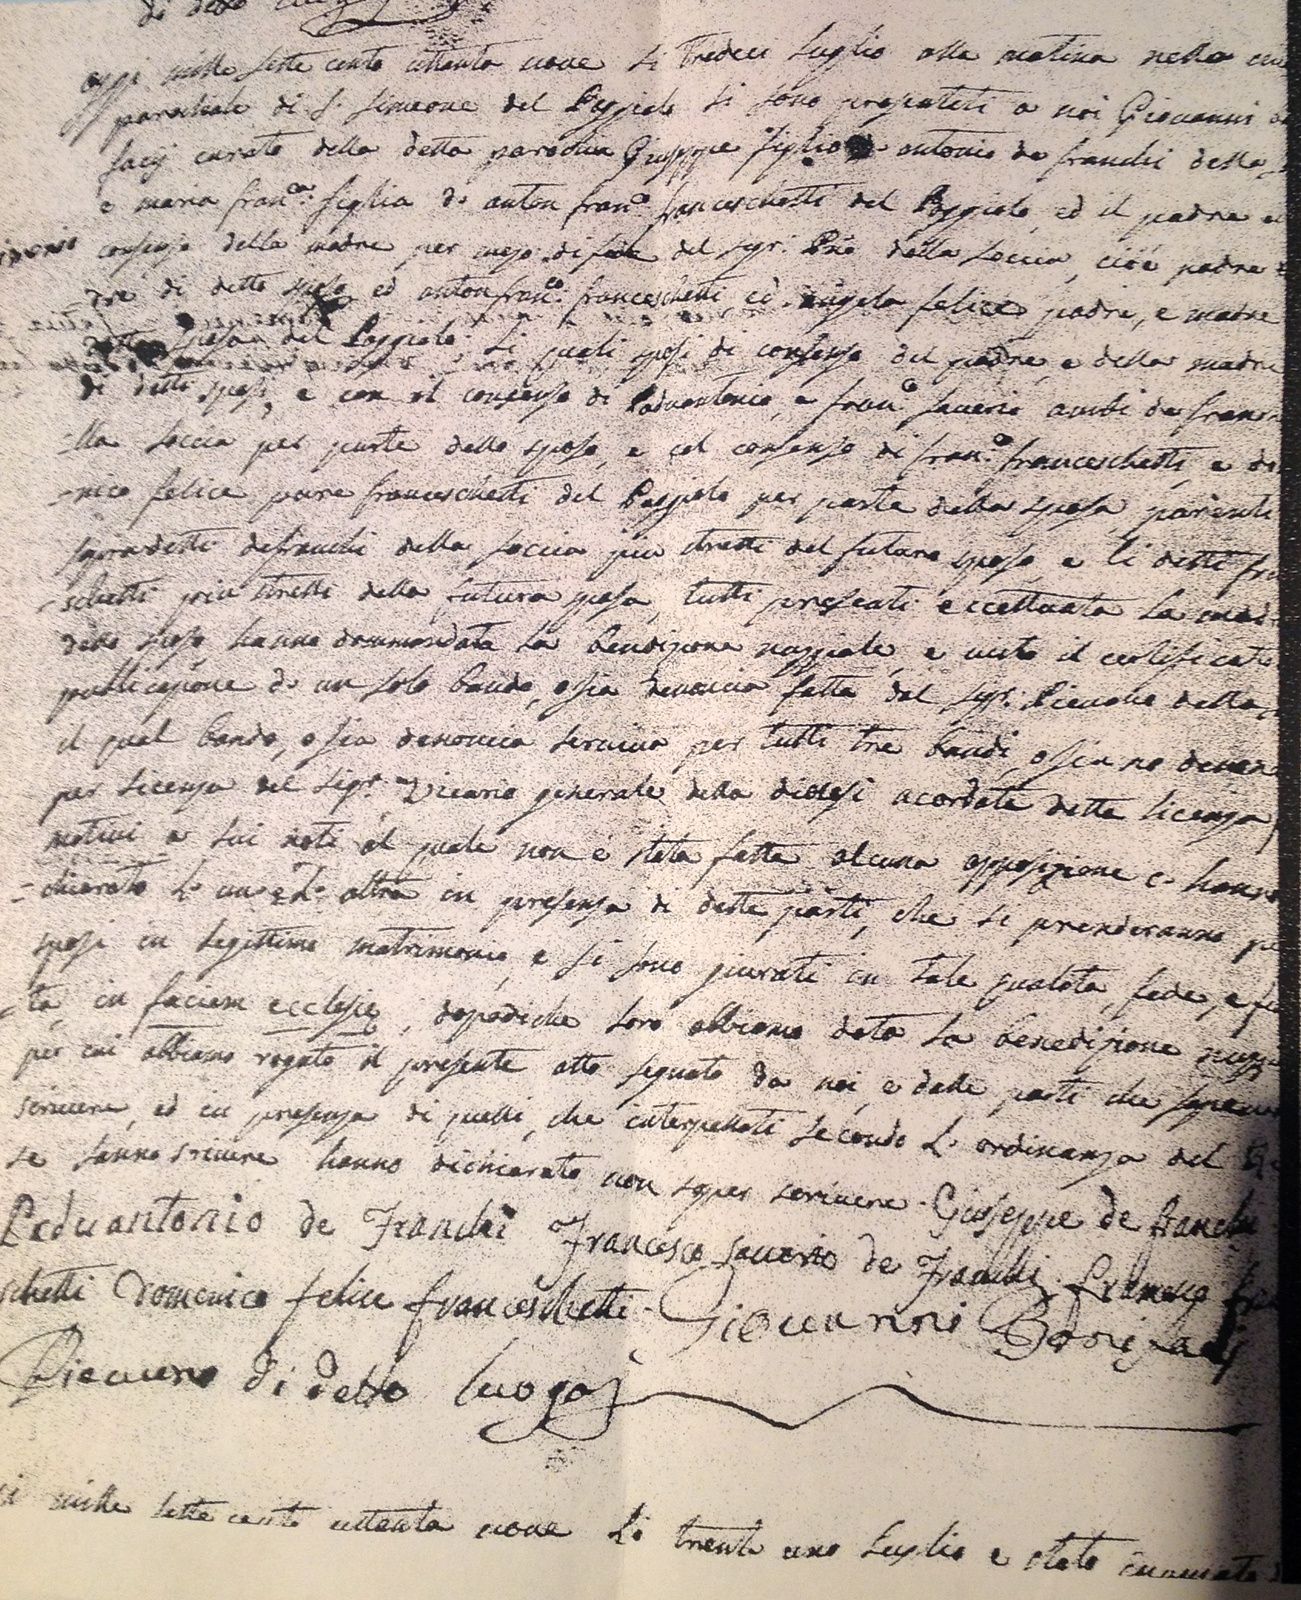 di detto luogo
oggi mille sette cento ottanta nove li tredeci luglio alla matina nella
parochiale di S. Simeone del Poggiolo si sono presentati a noi Giovanni
curato della detta parochia Giuseppe figlio antonio de franchi della
e maria fran.ca figlia di anton fran.co franceschetti del Poggiolo, ed il padre
consenso della madre per mezo di fede del sigr. della soccia, cioè padre
dre di detto sposo ed antonfran.co franceschetti ed angela felice padre, e madre
sposa del Poggiolo, li quali sposi di consenso del padre e della madre
di detti sposi, e con il consenso di Paduantonio, e fran.co saverio ambi de fran
lla soccia per parte dello sposo, e col consenso di fran.co franceschetti, e do
-nico felice pare franceschetti del Poggiolo per parte della sposa, parenti
sopradetti defranchi della soccia piu stretti del futuro sposo, e li detti fra
-schetti piu stretti della futura sposa, tutti presenti eccettuata la mad
dello sposo hanno dommandata la benedizione nuzziale, e visto il certificato
publicazione di un solo bando, osia denoncia fatta dal sigr. Pievano della
il qual bando, osia denoncia serviva per tutti tre bandi, osiano denon
per licenza del sigr. Vicario generale della diocesi acordata detta licenza
motivi a lui noti al quale non è stata fatta alcuna opposizione e hanno
-chiarato l'un e l'altra in presenza di dette parti, che si prenderanno pe
sposi in legittimo matrimonio, e si sono giurati in tale qualità, fede, e
-tà in faciem ecclesie, dopodiche loro abbiamo dato la benedizione nuzz
per cui abbiamo rogato il presente atto segnato da noi, e dalle parti che sapevano
scrivere, ed in presenza di quelli, che interpellati secondo l'ordinanza del
se sanno scrivere hanno dichiarato non saper scrivere. Giuseppe de franchi
Paduantonio de Franchi Francesco saverio de Franchi. Francesco fran
schetti Domenico felice franceschetti. Giovanni Bonifacij
Pievano di detto luogo
mille sette cento ottanta nove li trent uno luglio e stato